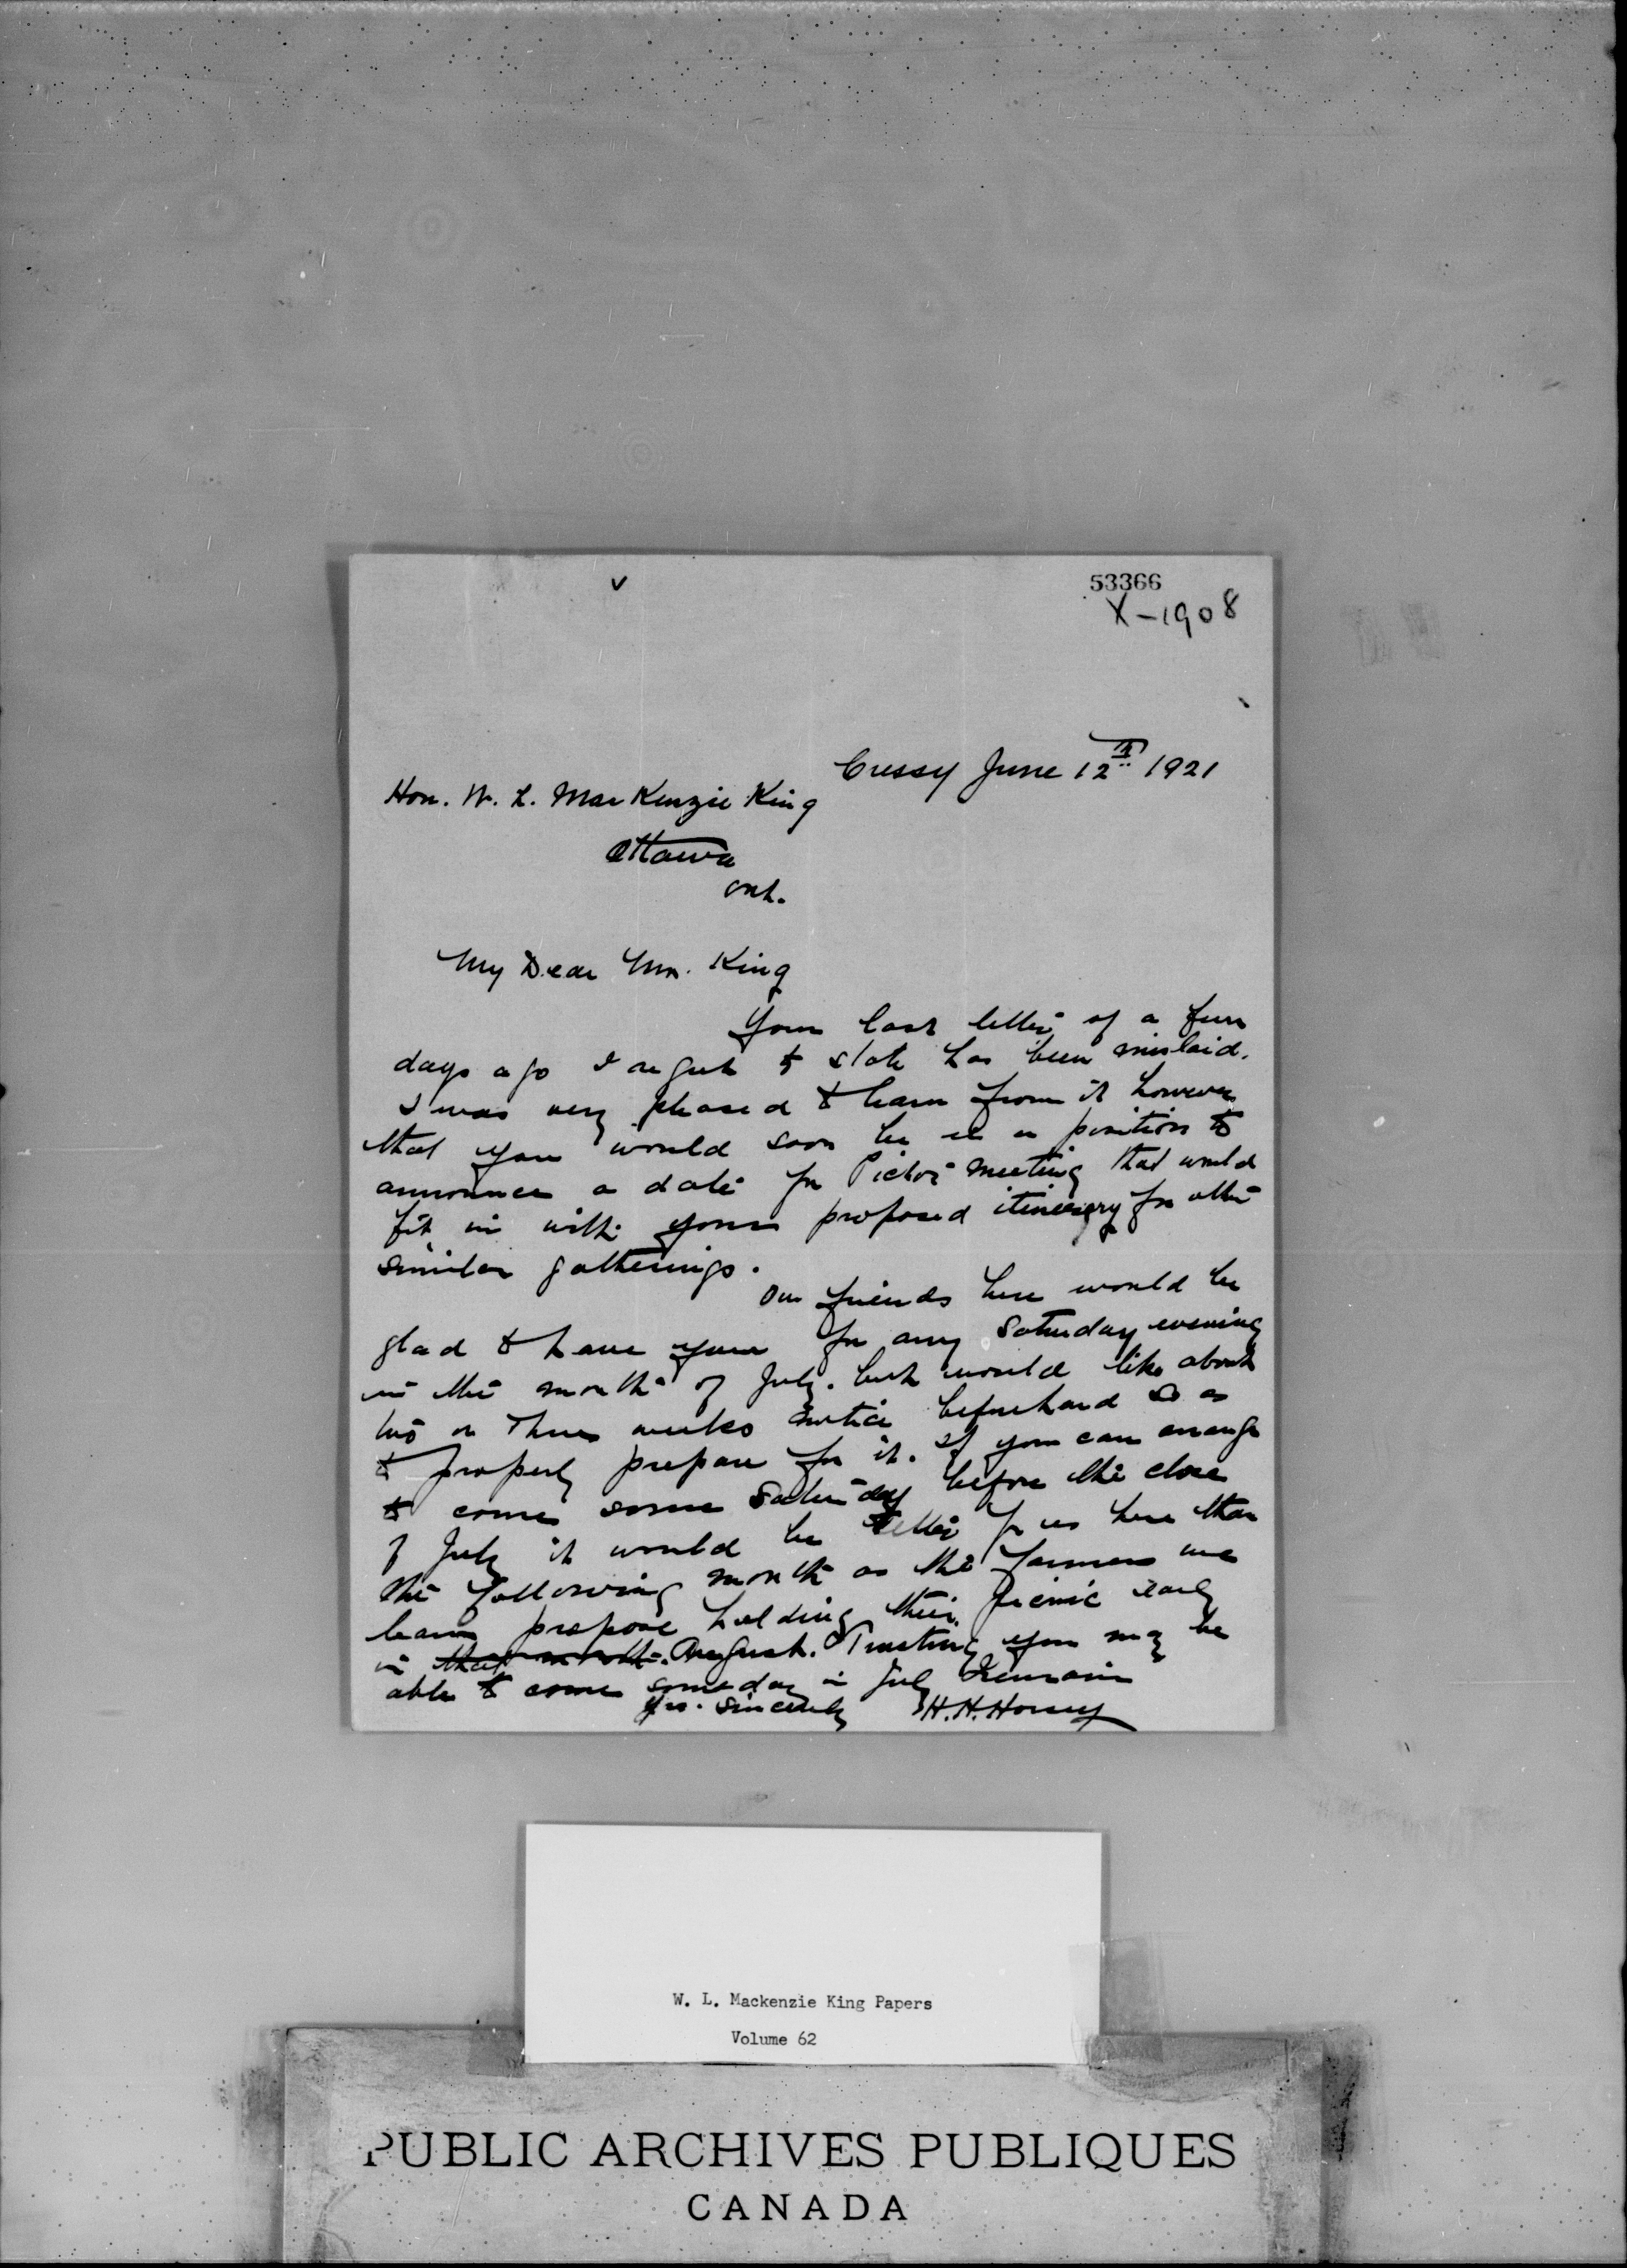 v
53366
X-1908
Cressy June 12th 1921
Hon. W. L. MacKenzie King
Ottawa
Ont.
My Dear Mr. King
Your last letter of a few
days ago I regret to state has been mislaid.
I was very pleased to learn from it however
that you would soon be in a position to
announce a date for Picton meeting that would
fit in with your proposed itinerary for other
similar gatherings.
Our friends here would be
glad to have you for any Saturday evening
in the month of July. but would like about
two or three weeks notice beforehand so as
to properly prepare for it. If you can arrange
to come some Saturday before the close
of July it would be better for us here than
the following month as the farmers we
learn propose holding their picnic early
in that month. August. Trusting you may be
able to come someday in July I remain
Yrs. Sincerely H. H. Horsey
W. L. Mackenzie King Papers
Volume 62
PUBLIC ARCHIVES PUBLIQUES
CANADA